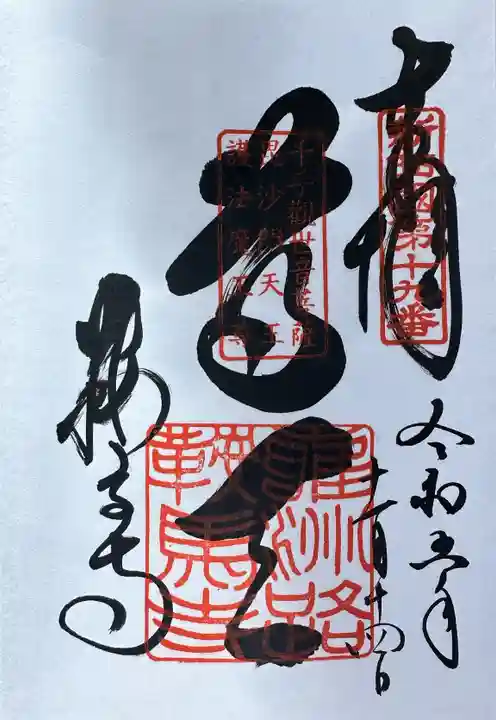 奉拝
新西國第十九番
令和五年
十一月十四日
尊天
千手觀世音菩薩
毘沙門天王
護法魔王尊
雍州路
鞍馬寺
鞍馬寺